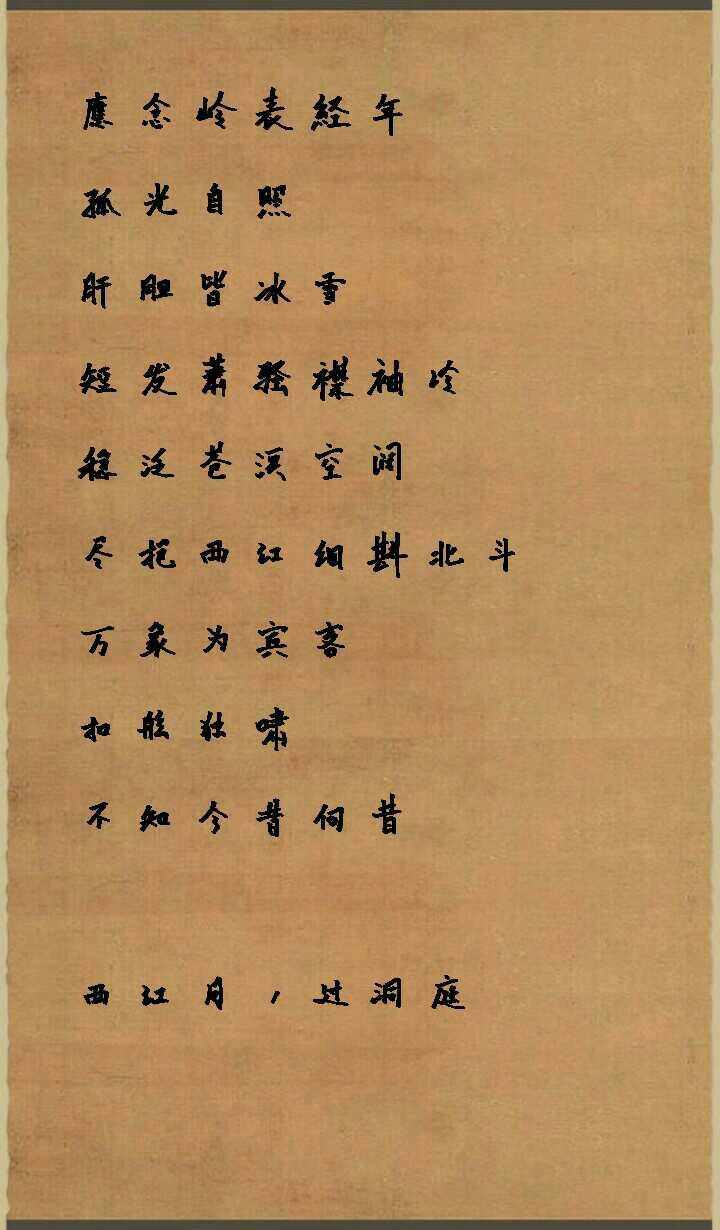 應念岭表経年
孤光自照
肝胆皆冰雪
短发蕭骚襟袖冷
稳泛苍溟空阔
尽挹西江细斟北斗
万象为宾客
扣舷独啸
不知今昔何昔
西江月，过洞庭